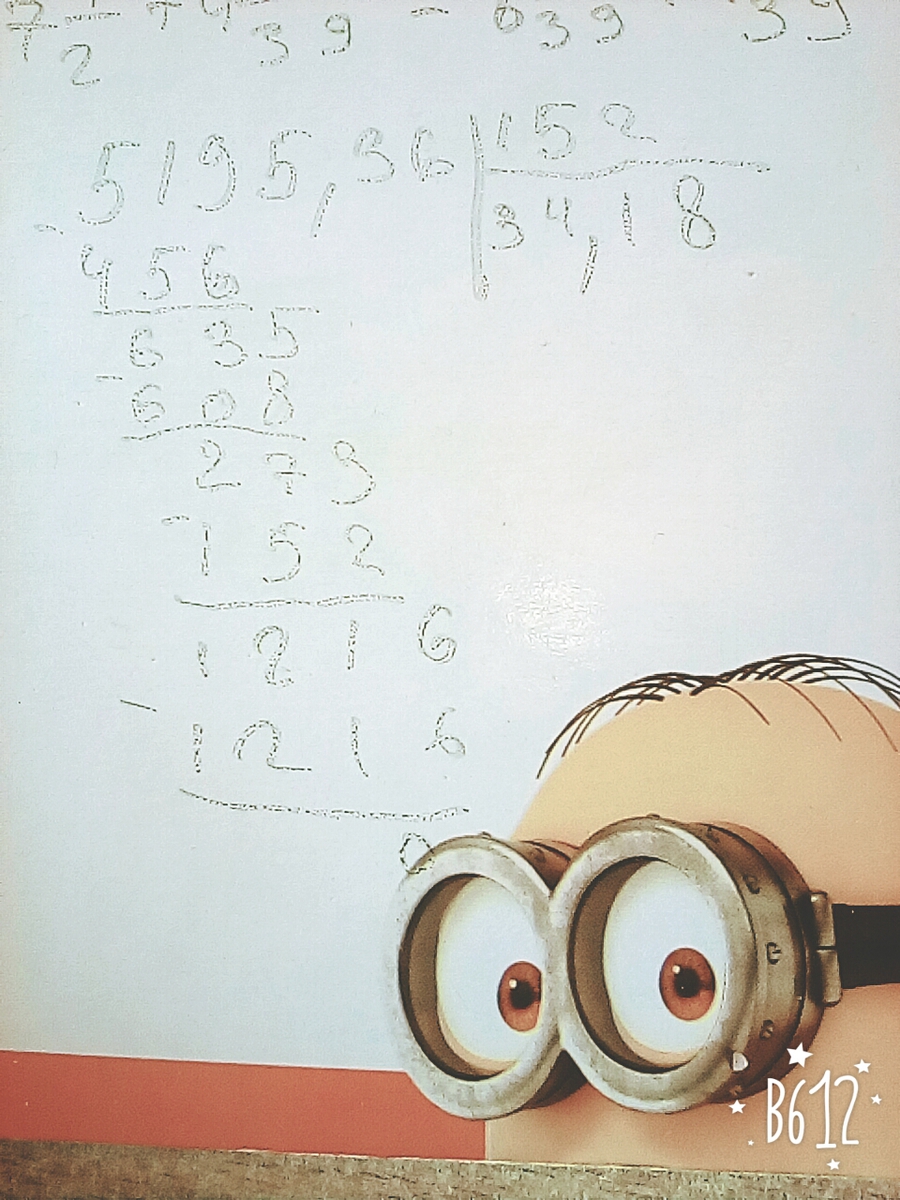 2
39
= 639
39
5195,36 | 152
- 456
34,18
635
- 608
273
- 152
1216
- 1216
0
B612